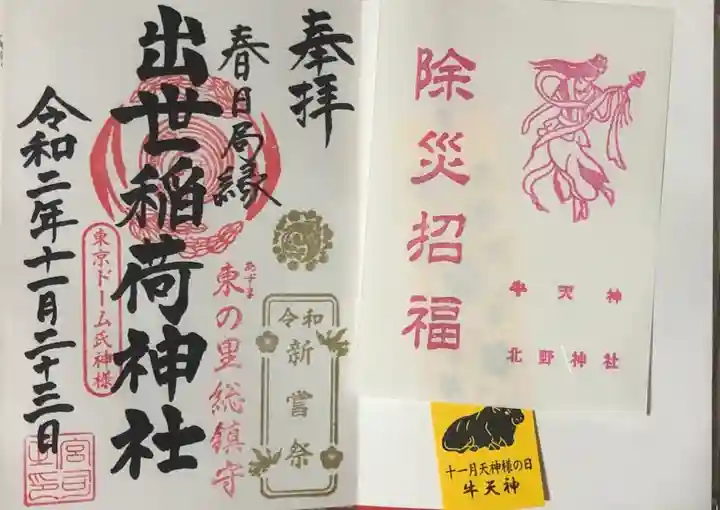 奉拝
春日局縁
出世稲荷神社
令和二年十一月二十三日
東京ドーム氏神様
あずま
東の里総鎮守
令和
新嘗祭
除災招福
牛天神
北野神社
十一月天神様の日
牛天神